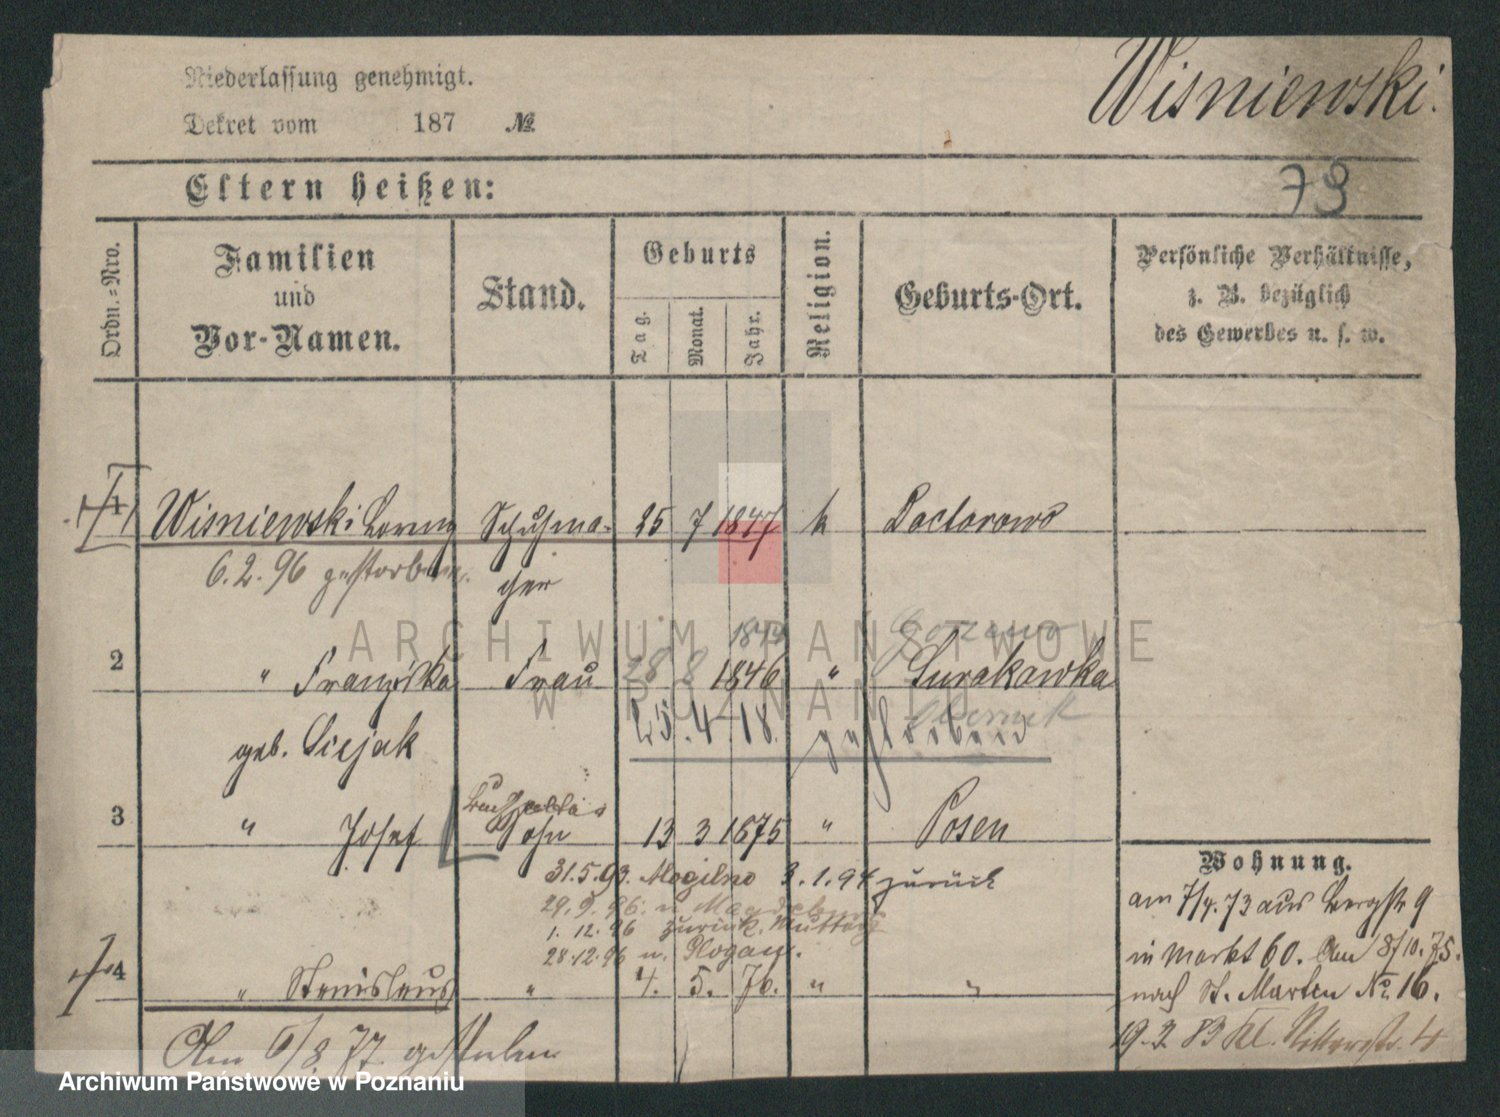 Niederlassung genehmigt.
Dekret vom 187 №
Wisniewski.
Eltern heißen:
73
Ordn.=Nro.
Familien
und
Vor-Namen.
Stand.
Geburts
Tag.
Monat.
Jahr.
Religion.
Geburts-Ort.
Persönliche Verhältnisse,
z. B. bezüglich
des Gewerbes u. s. w.
1 Wisniewski Lorenz Schuhma- 25 7 1847 k Doctorowo
6.2.96 gestorben. cher
1844
2 " Franziska Frau 28 8 1846 "
25.4.18. gestorben
geb. Ciejak
3 " Josef Sohn 13 3 1875 " Posen
31.5.93. Mogilno 3.1.94 zurück
29.9.96. n. Magdeburg
1.12.96 zurück.
28.12.96 n. Glogau.
4 " Stanislaus " 4. 5. 76. " "
Am 6/8. 77 gestorben
Wohnung.
am 7/4.73 aus Bergstr 9
in Markt 60. Am 8/10.75.
nach St. Martin No. 16.
19.3 83 Kl. Ritterstr. 4
ARCHIWUM PAŃSTWOWE
W POZNANIU
Archiwum Państwowe w Poznaniu